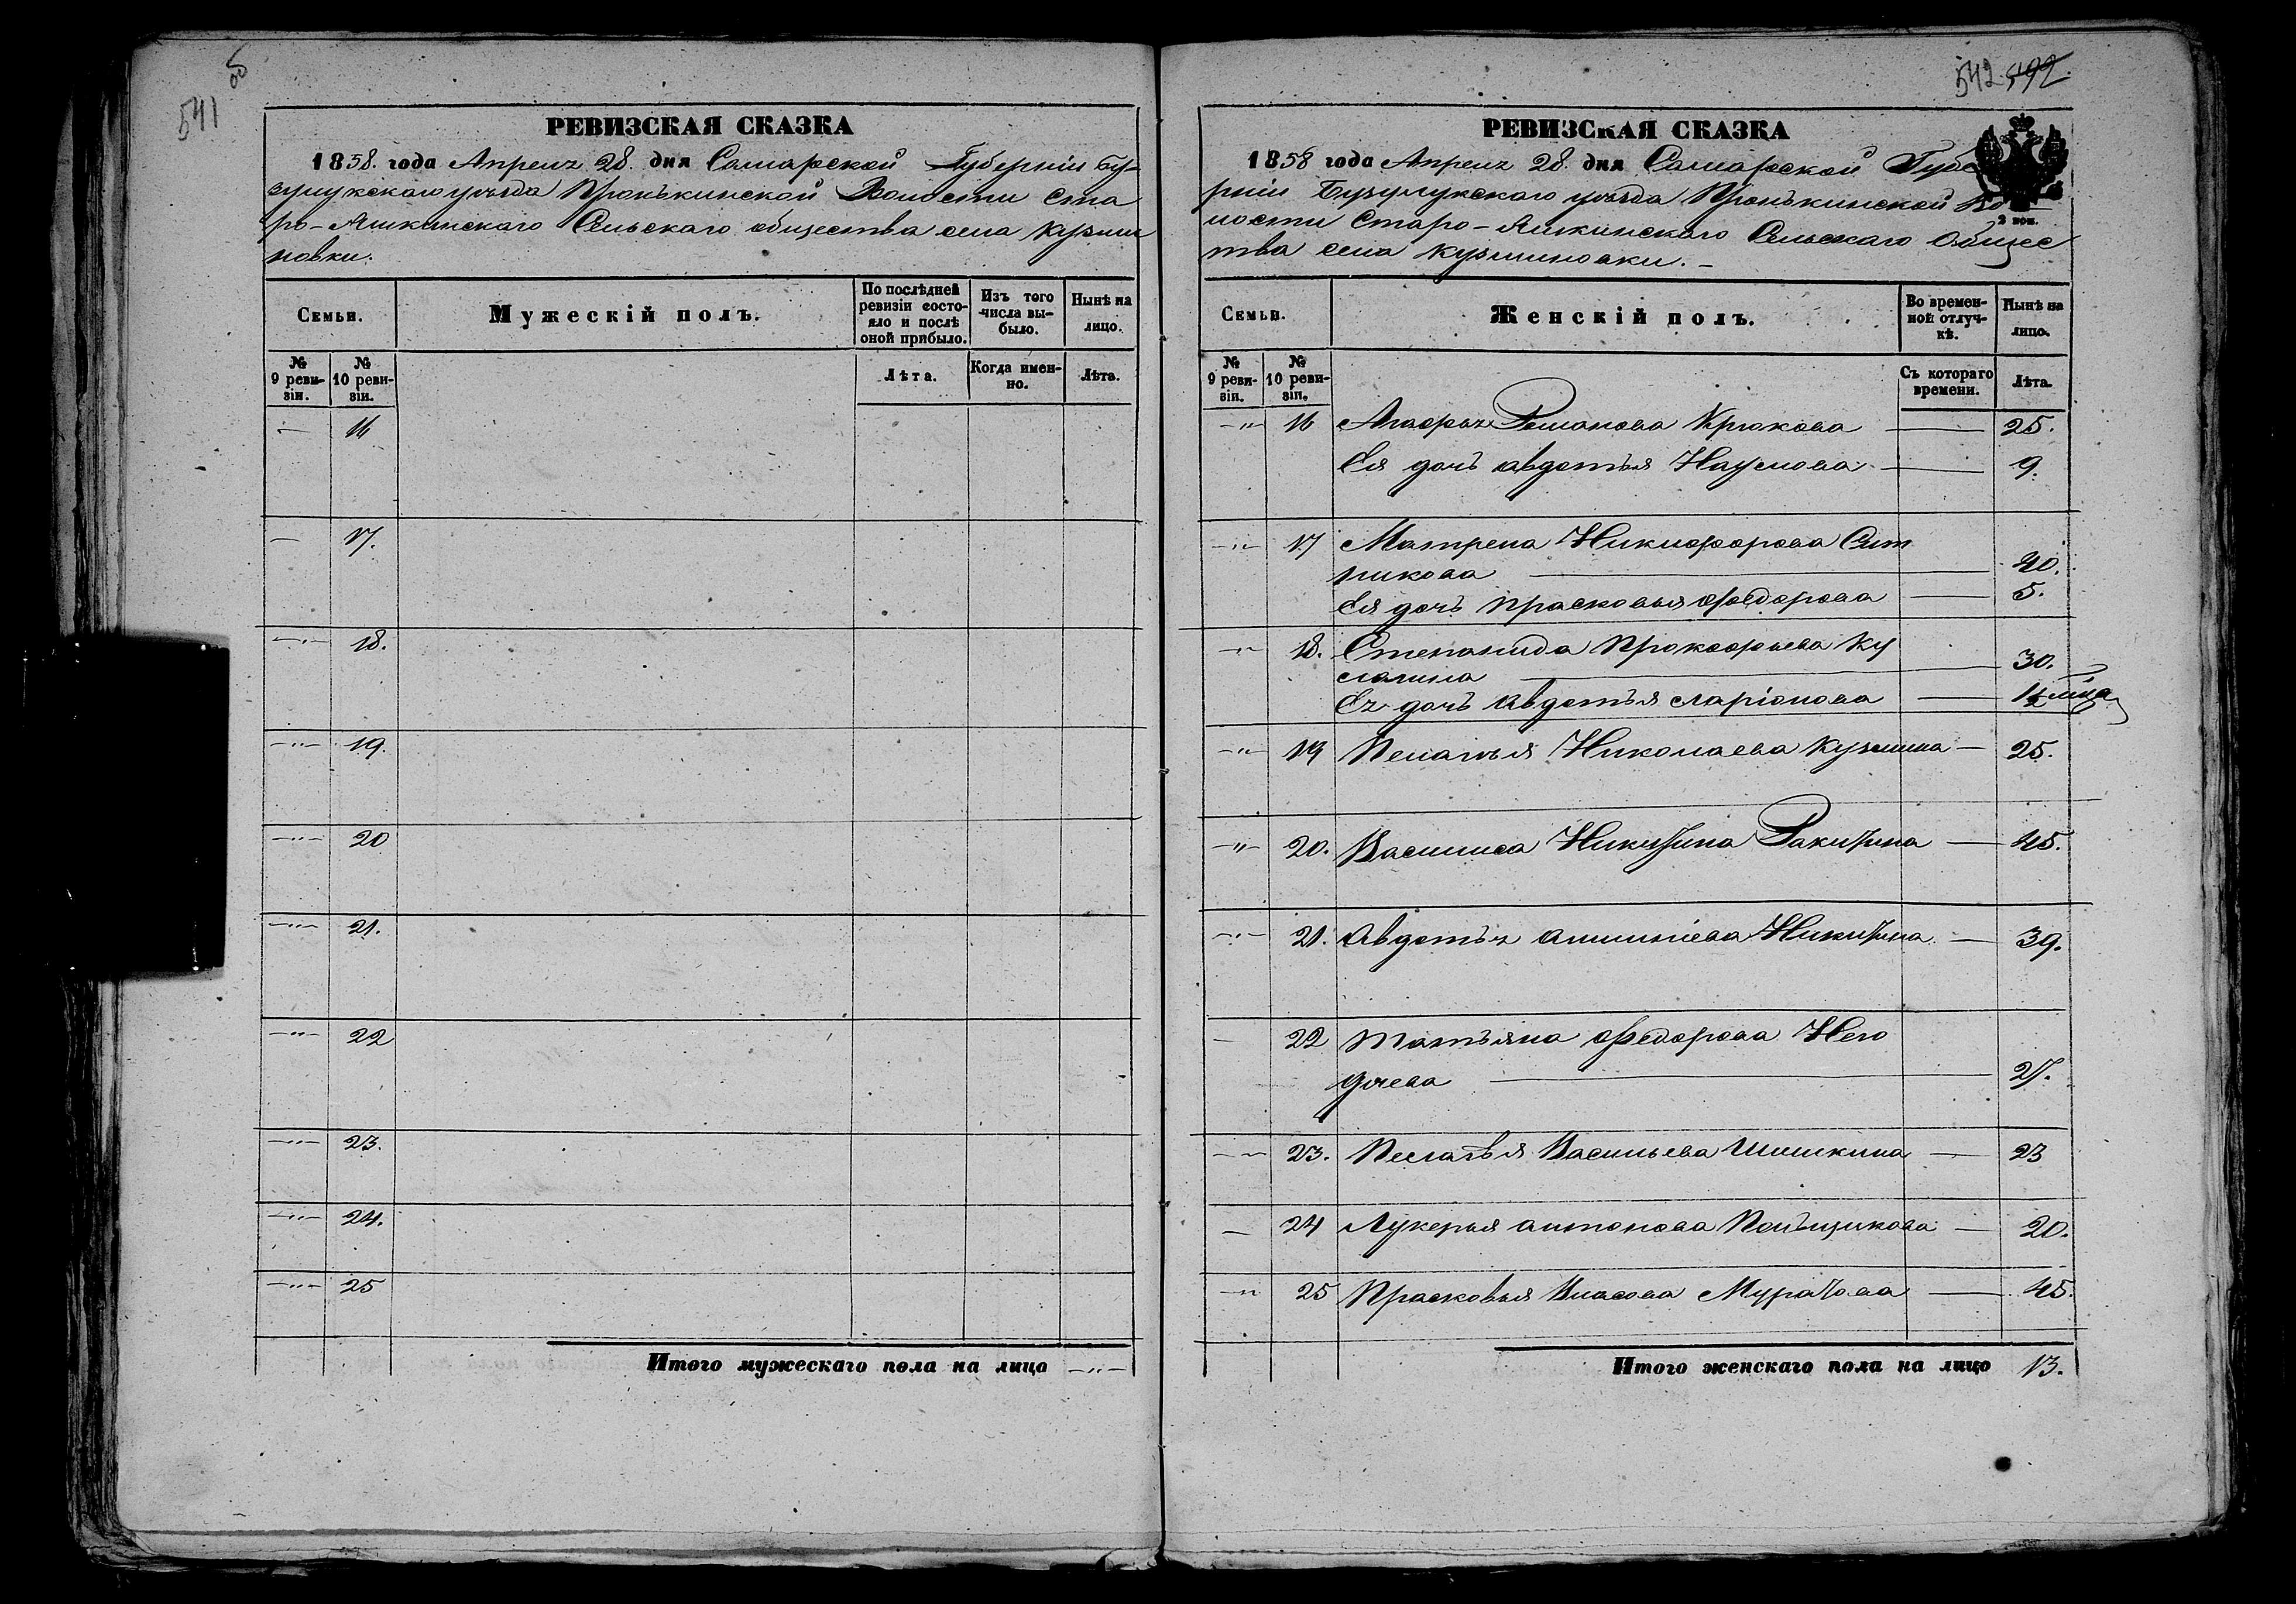 541
об
РЕВИЗСКАЯ СКАЗКА
1858. года Апреля 28. дня Самарской Губерніи Бу-
зулукскаго уѣзда Пронькинской Волости Ста
ро-Ашкинскаго Сельскаго общества села Кузьми
новки.
Семьи.
Мужескій полъ.
По послѣдней ревизіи состо-яло и послѣ оной прибыло.
Изъ того числа вы-было.
Нынѣ на лицо.
№ 9 реви-зіи.
№ 10 реви-зіи.
Лѣта.
Когда имен-но.
Лѣта.
— 16
— 17.
—"— 18.
—"— 19.
—"— 20
—"— 21.
—"— 22
—"— 23.
—"— 24.
—"— 25
Итого мужескаго пола на лицо —"—
542 492
РЕВИЗСКАЯ СКАЗКА
1858 года Апреля 28. дня Самарской Губе
рніи Бузулукскаго уѣзда Пронькинской Во
лости Старо-Ашкинскаго Сельскаго Общес
тва села Кузьминовки.-
2 коп.
Семьи.
Женскій полъ.
Во времен-ной отлуч-кѣ.
Нынѣ на лицо.
№ 9 реви-зіи.
№ 10 реви-зіи.
Съ котораго времени.
Лѣта.
—"— 16 Агафья Романова Крюкова — 25.
Ея дочь авдотья Наумова — 9.
—"— 17 Матрена Никифорова Сит
никова — 40.
Ея дочь Прасковья федорова — 5.
—"— 18. Степанида Прокофьева Ку
— 30.
Ея дочь авдотья ларіонова — 1½
—"— 19 Пелагья Николаева Кузмина — 25.
—"— 20. Василиса Никитина Ракитина — 45.
—"— 21. Авдотья Никитина — 39.
— 22 Татьяна федорова Него
дяева — 27.
—"— 23. Пелагѣя Васильева Шишкина — 23
— 24 Лукерья антонова — 20.
—"— 25 Прасковья Власова Муратова — 45.
Итого женскаго пола на лицо 13.